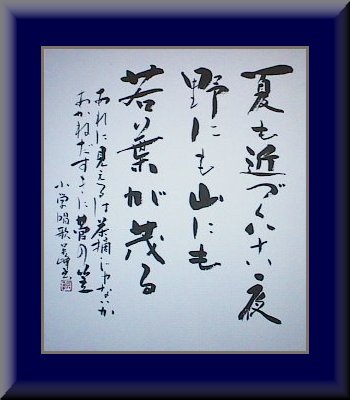 夏も近づく八十八夜
野にも山にも
若葉が茂る
あれに見えるは茶摘じゃないか
あかねだすきに菅の笠
小学唱歌